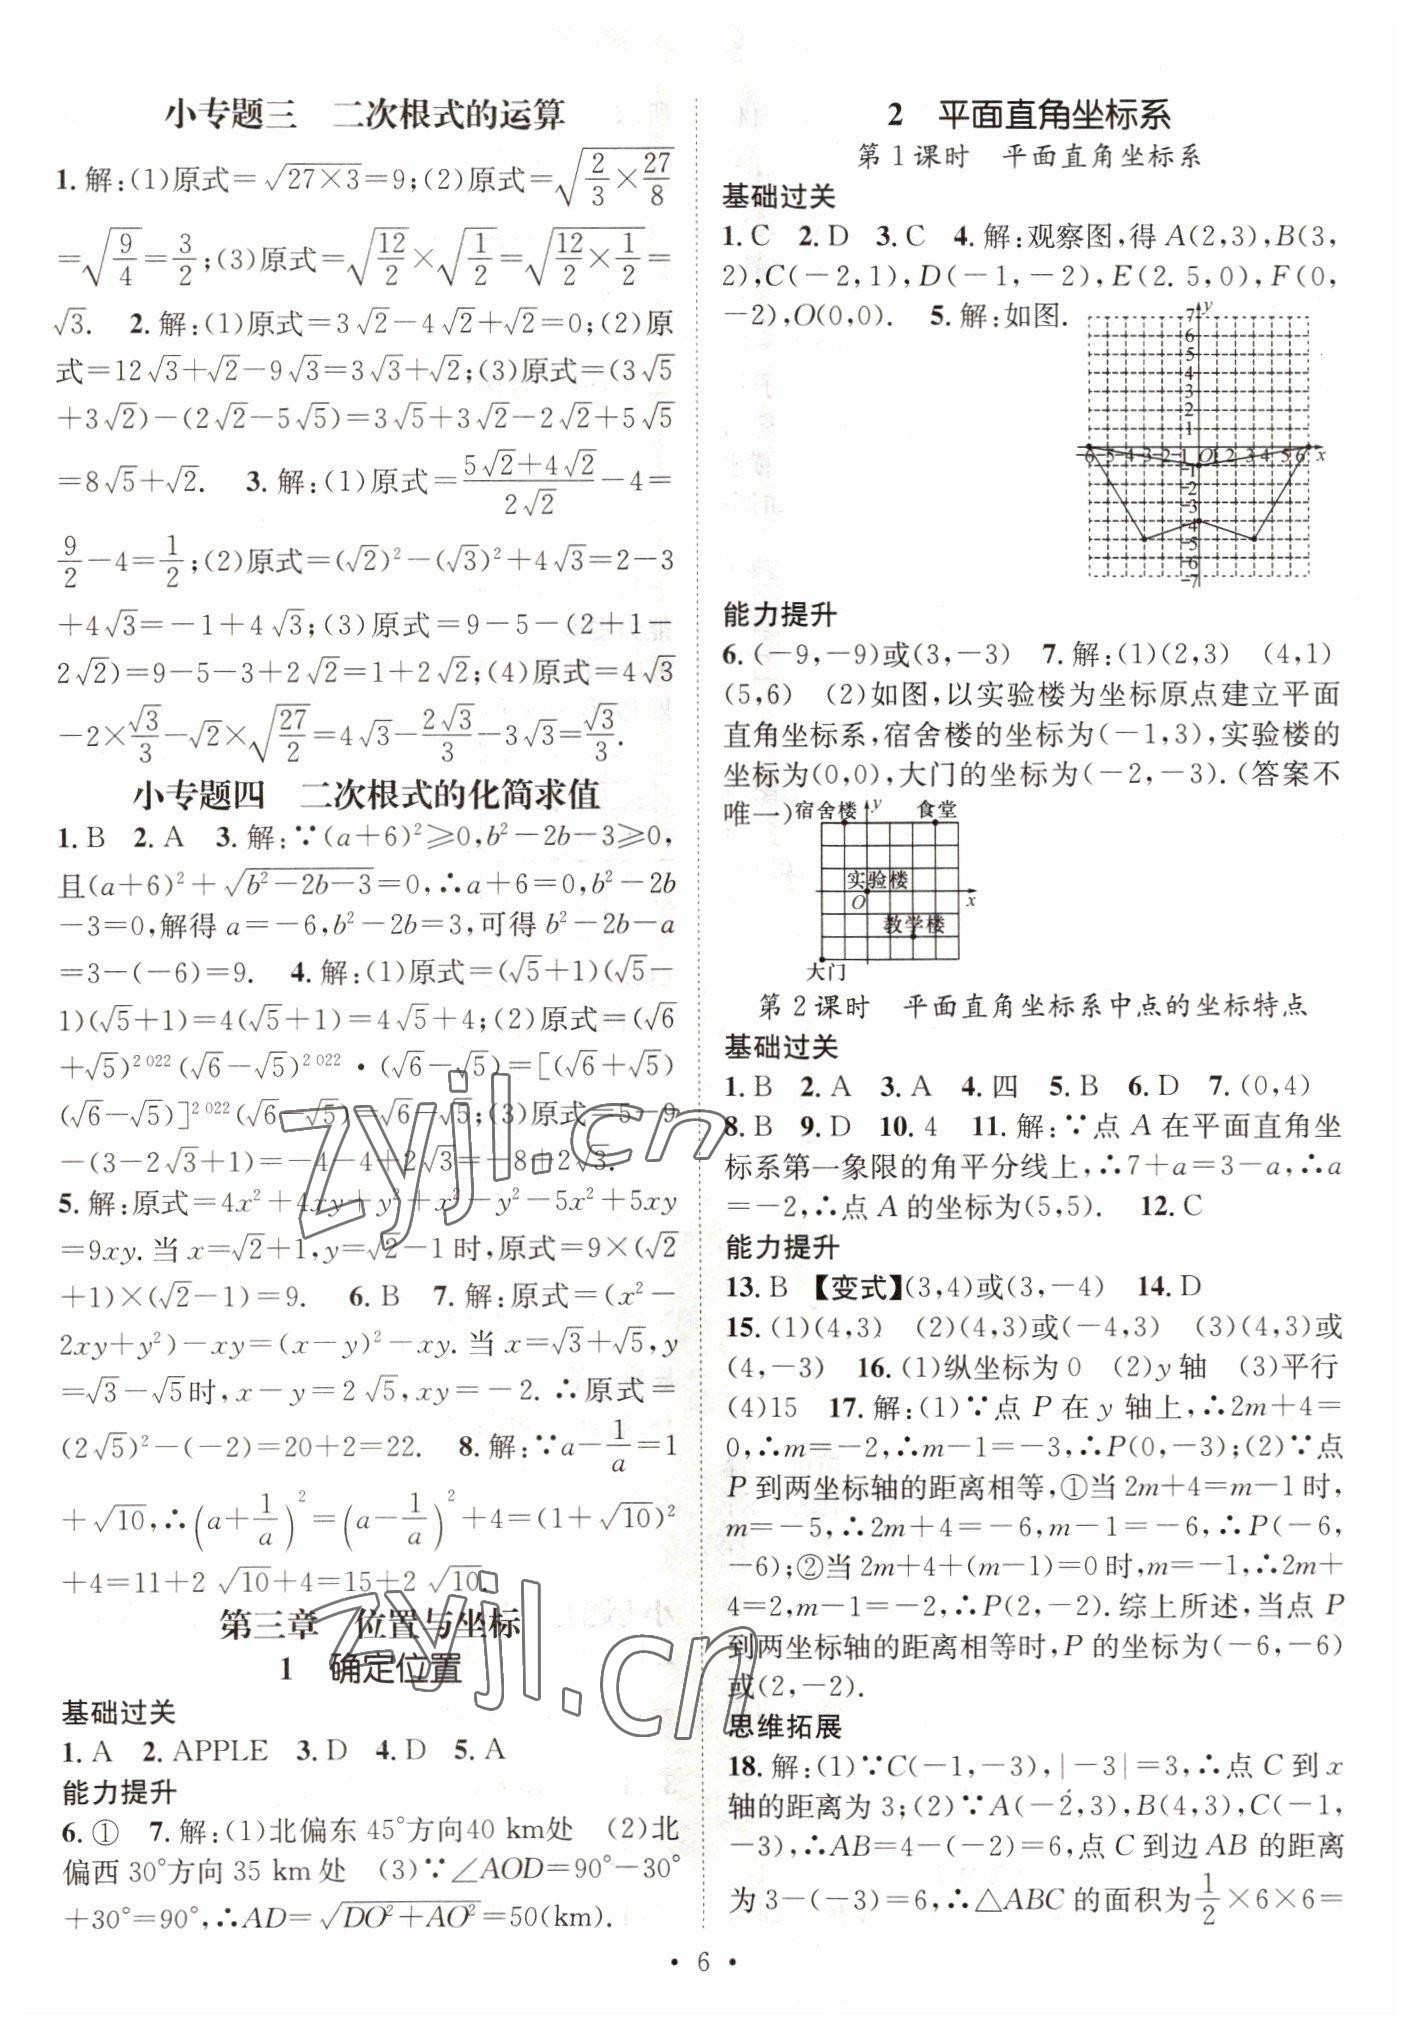 小专题三　二次根式的运算
1.解:(1)原式=√(27×3)=9;(2)原式=√(2/3×27/8)
=√(9/4)=3/2;(3)原式=√(12/2)×√(1/2)=√(12/2×1/2)=
√3.　2.解:(1)原式=3√2-4√2+√2=0;(2)原
式=12√3+√2-9√3=3√3+√2;(3)原式=(3√5
+3√2)-(2√2-5√5)=3√5+3√2-2√2+5√5
=8√5+√2.　3.解:(1)原式=(5√2+4√2)/(2√2)-4=
9/2-4=1/2;(2)原式=(√2)²-(√3)²+4√3=2-3
+4√3=-1+4√3;(3)原式=9-5-(2+1-
2√2)=9-5-3+2√2=1+2√2;(4)原式=4√3
-2×√3/3-√2×√(27/2)=4√3-2√3/3-3√3=√3/3.
小专题四　二次根式的化简求值
1.B　2.A　3.解:∵(a+6)²≥0,b²-2b-3≥0,
且(a+6)²+√(b²-2b-3)=0,∴a+6=0,b²-2b
-3=0,解得a=-6,b²-2b=3,可得b²-2b-a
=3-(-6)=9.　4.解:(1)原式=(√5+1)(√5-
1)(√5+1)=4(√5+1)=4√5+4;(2)原式=(√6
+√5)²⁰²²(√6-√5)²⁰²²·(√6-√5)=[(√6+√5)
(√6-√5)]²⁰²²(√6-√5)=√6-√5;(3)原式=5-9
-(3-2√3+1)=-4-4+2√3=-8+2√3.
5.解:原式=4x²+4xy+y²+x²-y²-5x²+5xy
=9xy.当x=√2+1,y=√2-1时,原式=9×(√2
+1)×(√2-1)=9.　6.B　7.解:原式=(x²-
2xy+y²)-xy=(x-y)²-xy.当x=√3+√5,y
=√3-√5时,x-y=2√5,xy=-2.∴原式=
(2√5)²-(-2)=20+2=22.　8.解:∵a-1/a=1
+√10,∴(a+1/a)²=(a-1/a)²+4=(1+√10)²
+4=11+2√10+4=15+2√10.
第三章　位置与坐标
1　确定位置
基础过关
1.A　2.APPLE　3.D　4.D　5.A
能力提升
6.①　7.解:(1)北偏东45°方向40 km处　(2)北
偏西30°方向35 km处　(3)∵∠AOD=90°-30°
+30°=90°,∴AD=√(DO²+AO²)=50(km).
2　平面直角坐标系
第1课时　平面直角坐标系
基础过关
1.C　2.D　3.C　4.解:观察图,得A(2,3),B(3,
2),C(-2,1),D(-1,-2),E(2.5,0),F(0,
-2),O(0,0).　5.解:如图.
y
7
6
5
4
3
2
1
-6-5-4-3-2-1 O 1 2 3 4 5 6 x
-1
-2
-3
-4
-5
-6
-7
能力提升
6.(-9,-9)或(3,-3)　7.解:(1)(2,3)　(4,1)
(5,6)　(2)如图,以实验楼为坐标原点建立平面
直角坐标系,宿舍楼的坐标为(-1,3),实验楼的
坐标为(0,0),大门的坐标为(-2,-3).(答案不
唯一)
宿舍楼 y 食堂
实验楼
O x
教学楼
大门
第2课时　平面直角坐标系中点的坐标特点
基础过关
1.B　2.A　3.A　4.四　5.B　6.D　7.(0,4)
8.B　9.D　10.4　11.解:∵点A在平面直角坐
标系第一象限的角平分线上,∴7+a=3-a,∴a
=-2,∴点A的坐标为(5,5).　12.C
能力提升
13.B　【变式】(3,4)或(3,-4)　14.D
15.(1)(4,3)　(2)(4,3)或(-4,3)　(3)(4,3)或
(4,-3)　16.(1)纵坐标为0　(2)y轴　(3)平行
(4)15　17.解:(1)∵点P在y轴上,∴2m+4=
0,∴m=-2,∴m-1=-3,∴P(0,-3);(2)∵点
P到两坐标轴的距离相等,①当2m+4=m-1时,
m=-5,∴2m+4=-6,m-1=-6,∴P(-6,
-6);②当2m+4+(m-1)=0时,m=-1,∴2m+
4=2,m-1=-2,∴P(2,-2).综上所述,当点P
到两坐标轴的距离相等时,P的坐标为(-6,-6)
或(2,-2).
思维拓展
18.解:(1)∵C(-1,-3),|-3|=3,∴点C到x
轴的距离为3;(2)∵A(-2,3),B(4,3),C(-1,
-3),∴AB=4-(-2)=6,点C到边AB的距离
为3-(-3)=6,∴△ABC的面积为1/2×6×6=
·6·
zyjl.cn
zyjl.cn